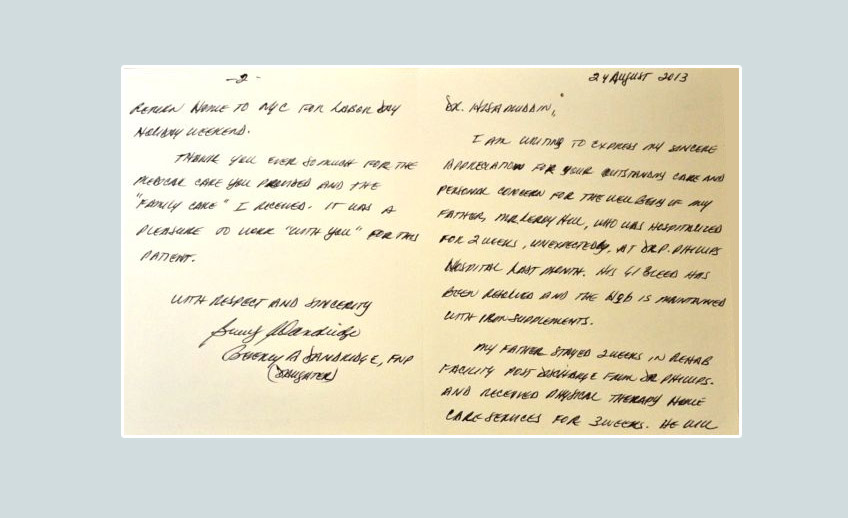 24 August 2013
DR. HISAMUDDIN,
I AM WRITING TO EXPRESS MY SINCERE
APPRECIATION FOR YOUR OUTSTANDING CARE AND
PERSONAL CONCERN FOR THE WELL BEING OF MY
FATHER, MR. LEROY HILL, WHO WAS HOSPITALIZED
FOR 2 WEEKS, UNEXPECTEDLY, AT DR. P. PHILLIPS
HOSPITAL LAST MONTH. HIS GI BLEED HAS
BEEN RESOLVED AND THE Hgb IS MAINTAINED
WITH IRON SUPPLEMENTS.
MY FATHER STAYED 2 WEEKS IN REHAB
FACILITY POST DISCHARGE FROM DR PHILLIPS.
AND RECEIVED PHYSICAL THERAPY HOME
CARE SERVICES FOR 3 WEEKS. HE WILL
-2-
RETURN HOME TO NYC FOR LABOR DAY
HOLIDAY WEEKEND.
THANK YOU EVER SO MUCH FOR THE
MEDICAL CARE YOU PROVIDED AND THE
"FAMILY CARE" I RECEIVED. IT WAS A
PLEASURE TO WORK "WITH YOU" FOR THIS
PATIENT.
WITH RESPECT AND SINCERITY
A DANDRIDGE, FNP
(DAUGHTER)